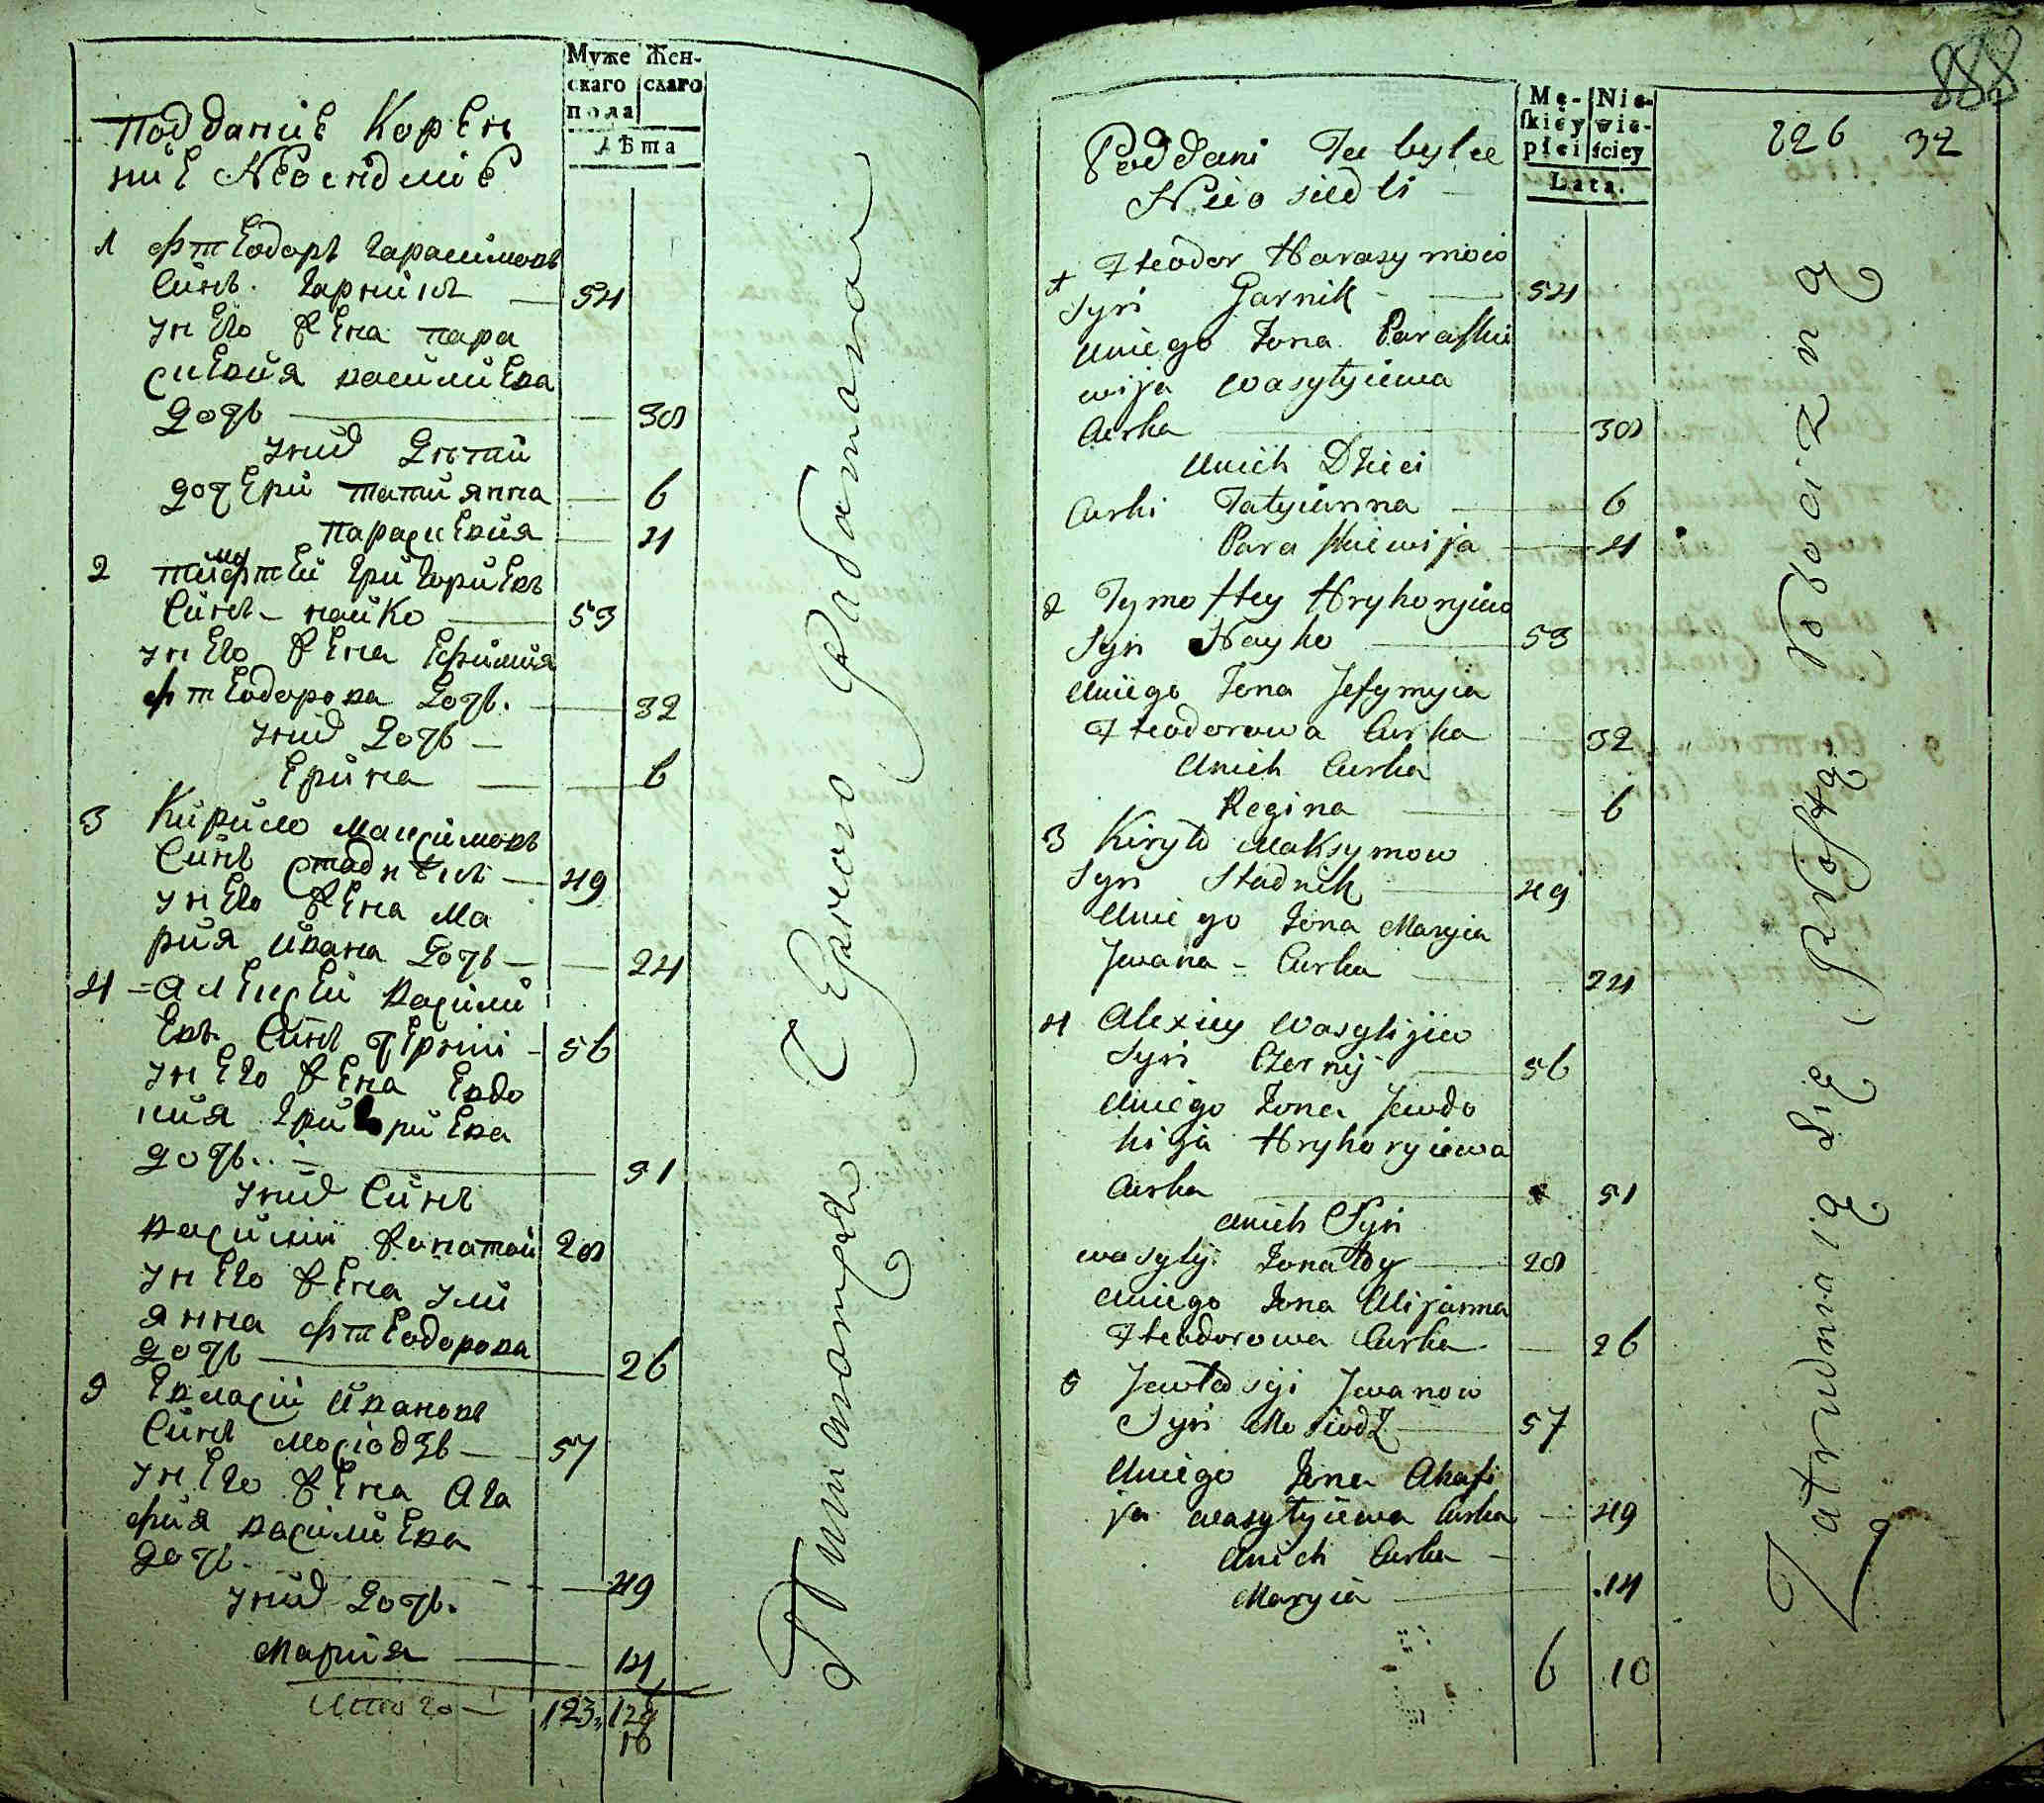 Муже
скаго
пола
Жен-
скаго
Лѣта
Подданіе Корен
ніе Неосидліе
1 Фтеодоръ Гарасимовъ
Синъ Гарникъ — 54
Унего Жена Пара
скевия василиева
Дочь — 30
Унид Дѣти
Дочери Татиянна — 6
Параскевия — 4
2 Тимофтей Григориевъ
Синъ — Найко — 53
Унего Жена Ефимия
Фтеодорова Дочь. — 32
Унид Дочь —
Ерина — 6
3 Кирило Максимовъ
Синъ Стадникъ — 49
Унего Жена Ма
рия Ивана Дочь — 24
4 = Алексей Васили
евъ Синъ Черній — 56
Унего Жена Евдо
кия Григориева
Дочь.. — 51
Унид Синъ
Василий Жонатий 28
Унего Жена Ули
янна Фтеодорова
Дочь — 26
5 Евласій Ивановъ
Синъ Мосіодзь — 57
Унего Жена Ага
фия василиева
Дочь. — 49
Унид Дочь.
Мария — 14
Итого — 123. 124
16
Черно Работою
Mę-
skiey
płci
Nie-
wie-
ściey
Lata.
888
226 32
Poddani Tu bylce
Nieo siedli —
1 Fteodor Harasymow
Syn Garnik — 54
Uniego Zona Paraskie
wija Wasylyiewa
Curka — 30
Unich Dzieci
Curki Tatyianna — 6
Paraskiewija — 4
2 Tymoftey Hryhoryiew
Syn Nayko — 53
Uniego Zona Jefymyia
Fteodorowa Curka — 32
Unich Curka
Regina — 6
3 Kiryło Maksymow
Syn Stadnik — 49
Uniego Zona Maryia
Jwana - Curka — 24
4 Alexiey Wasylijew
Syn Czernij — 56
Uniego Zona Jewdo
kija Hryhoryiewa
Curka — 51
Unich Syn
Wasylij Zonatoy — 28
Uniego Zona Ulijanna
Fteodorowa Curka — 26
5 Jewłasyi Jwanow
Syn Mosiodz — 57
Uniego Zona Ahafi
ja Wasylyiewa Curka — 49
Unich Curka —
Maryia — 14
6 10
Zatrudniaią Się Prostą Robocizną